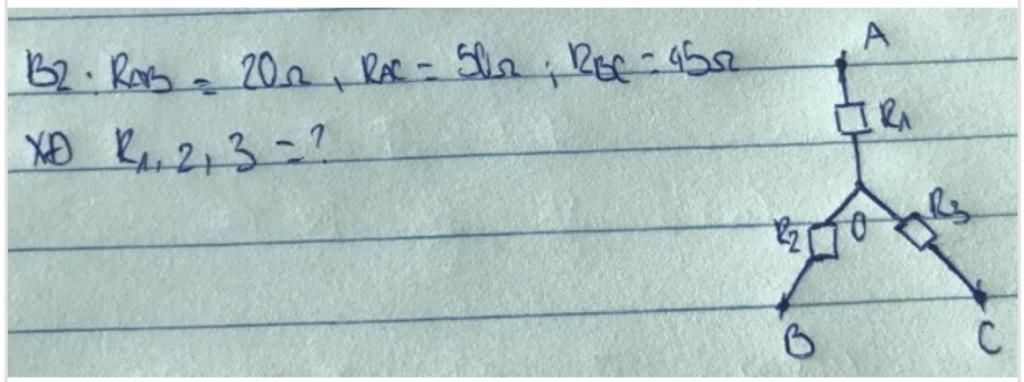 B2: RAB = 20Ω, RAC = 50Ω; RBC = 45Ω
XĐ R1, 2, 3 = ?
A
R1
R3
R2
O
B
C